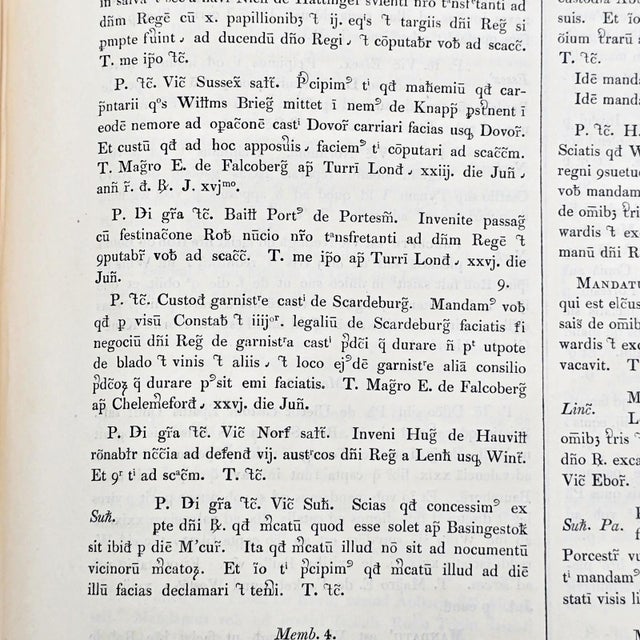 dñm Regē cū x. papillionibȝ ⁊ ij. eqⁱs ⁊ targiis dñi Reḡ si
ꝓmpte fuint ad ducendū dño Regi ⁊ cōputabr̄ vob̄ ad scacc̄.
T. me ip̄o ⁊c̄.
P. ⁊c̄. Vic̄ Sussex̄ salt̄. P̄cipimꝰ tⁱ qd̄ mah̄emiū qd̄ car-
p̄ntarii qᵒs Willm̄s Brieḡ mittet ī nemꝰ de Knapp̄ ꝑtinent ī
eodē nemore ad opac̄onē castⁱ Dovor̄ carriari facias usqȝ Dovor̄.
Et custū qd̄ ad hoc apposuis faciemꝰ tⁱ cōputari ad scacc̄m.
T. Mag̃ro E. de Falcoberg̃ ap̄ Turrī Lond̄ xxiij. die Juñ
anñ r̄. đ. ꝶ. J. xvjᵐᵒ.
P. Di gr̃a ⁊c̄. Baill̃ Portꝰ de Portesm̃. Invenite passag̃
cū festinac̄one Rob̄ nūcio nr̄o tᵃnsfretanti ad dñm Regē ⁊
ꝯputabr̄ vob̄ ad scacc̄. T. me ip̄o ap̄ Turrī Lond̄ xxvj. die
Juñ. 9.
P. ⁊c̄. Custod̄ garnistᵃre castⁱ de Scardeburg̃. Mandamꝰ vob̄
qd̄ ꝑ visū Constab̃ ⁊ iiijᵒʳ. legaliū de Scardeburg̃ faciatis fⁱi
negociū dñi Reḡ de garnistᵃra castⁱ p̄dc̄i q̄ durare ñ pᵗ utpote
de blado ⁊ vinis ⁊ aliis ⁊ loco ejꝰdē garnistᵃre aliā consilio
p̄dc̄oꝝ q̄ durare pꝰsit emi faciatis. T. Mag̃ro E. de Falcoberg̃
ap̄ Chelemeford̄ xxvj. die Juñ.
P. Di gr̃a ⁊c̄. Vic̄ Norf̄ salt̄. Inveni Hug̃ de Hauvill̃
rōnabr̄ ncc̄ia ad defend̄ vij. austʳcos dñi Reḡ a Lenñ usqȝ Winr̄.
Et ꝯʳ tⁱ ad scac̄m. T. ⁊c̄.
Suh̃. P. Di gr̃a ⁊c̄. Vic̄ Suh̃. Scias qd̄ concessimꝰ ex
pte dñi ꝶ. qd̄ m̃catū quod esse solet ap̄ Basingestok̃
sit ibid̄ ꝑ diē M̃cur̃. Ita qd̄ m̃catū illud nō sit ad nocumentū
vicinorū m̃catoꝝ. Et īo tⁱ p̄cipimꝰ qd̄ m̃catū illud ad diē
illū facias declamari ⁊ teñi. T. ⁊c̄.
Memb. 4.
suis. Et īo
T. ⁊c̄.
Idē manda
Idē manda
P. ⁊c̄. H
Sciatis qd̄ W
regni ꝯsuetud
vob̄ mandam
de omībȝ t̃ris
wardis ⁊ ex
manū dñi R
Mandatu
qui est elc̄us
sais̄ de omīb
wardis ⁊ ex
vacavit. T
Linc̄.
omībȝ t̃ris
dño R. exca
Vic̄ Ebor̄.
Suh̃. Pa.
Porcestr̄ vu
tⁱ mandamꝰ
statī visis li